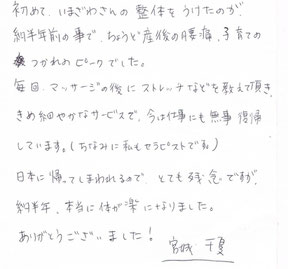 初めて、いまざわさんの整体をうけたのが、
約半年前の事で、ちょうど産後の腰痛、子育ての
つかれのピークでした。
毎回、マッサージの後にストレッチなどを教えて頂き、
きめ細やかなサービスで、今は仕事にも無事復帰
しています。(ちなみに私もセラピストです)
日本に帰ってしまわれるので、とても残念ですが、
約半年、本当に体が楽になりました。
ありがとうございました!
宮城 千夏